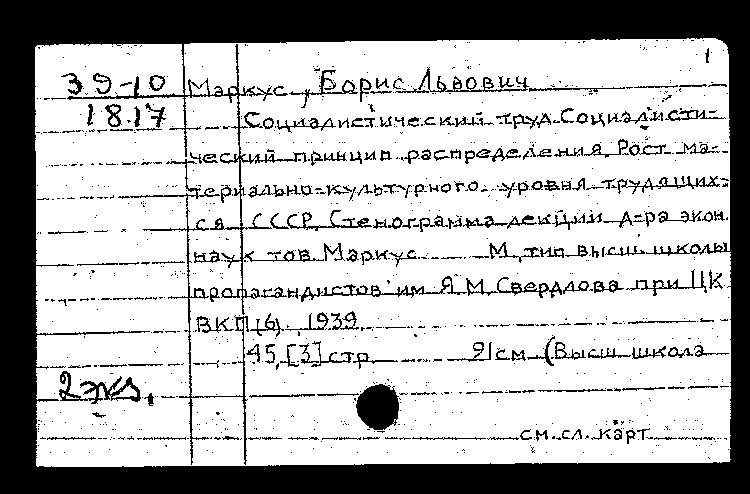 1
39-10 Маркус, Борис Львович
18.17 Социалистический труд. Социалисти-
ческий принцип распределения. Рост ма-
териально-культурного уровня трудящих-
ся СССР. Стенограмма лекции д-ра экон.
наук тов. Маркус. М., тип. высш. школы
пропагандистов им. Я. М. Свердлова при ЦК
ВКП(б), 1939.
45, [3] стр. см (Высш. школа
2 экз.
см. сл. карт.